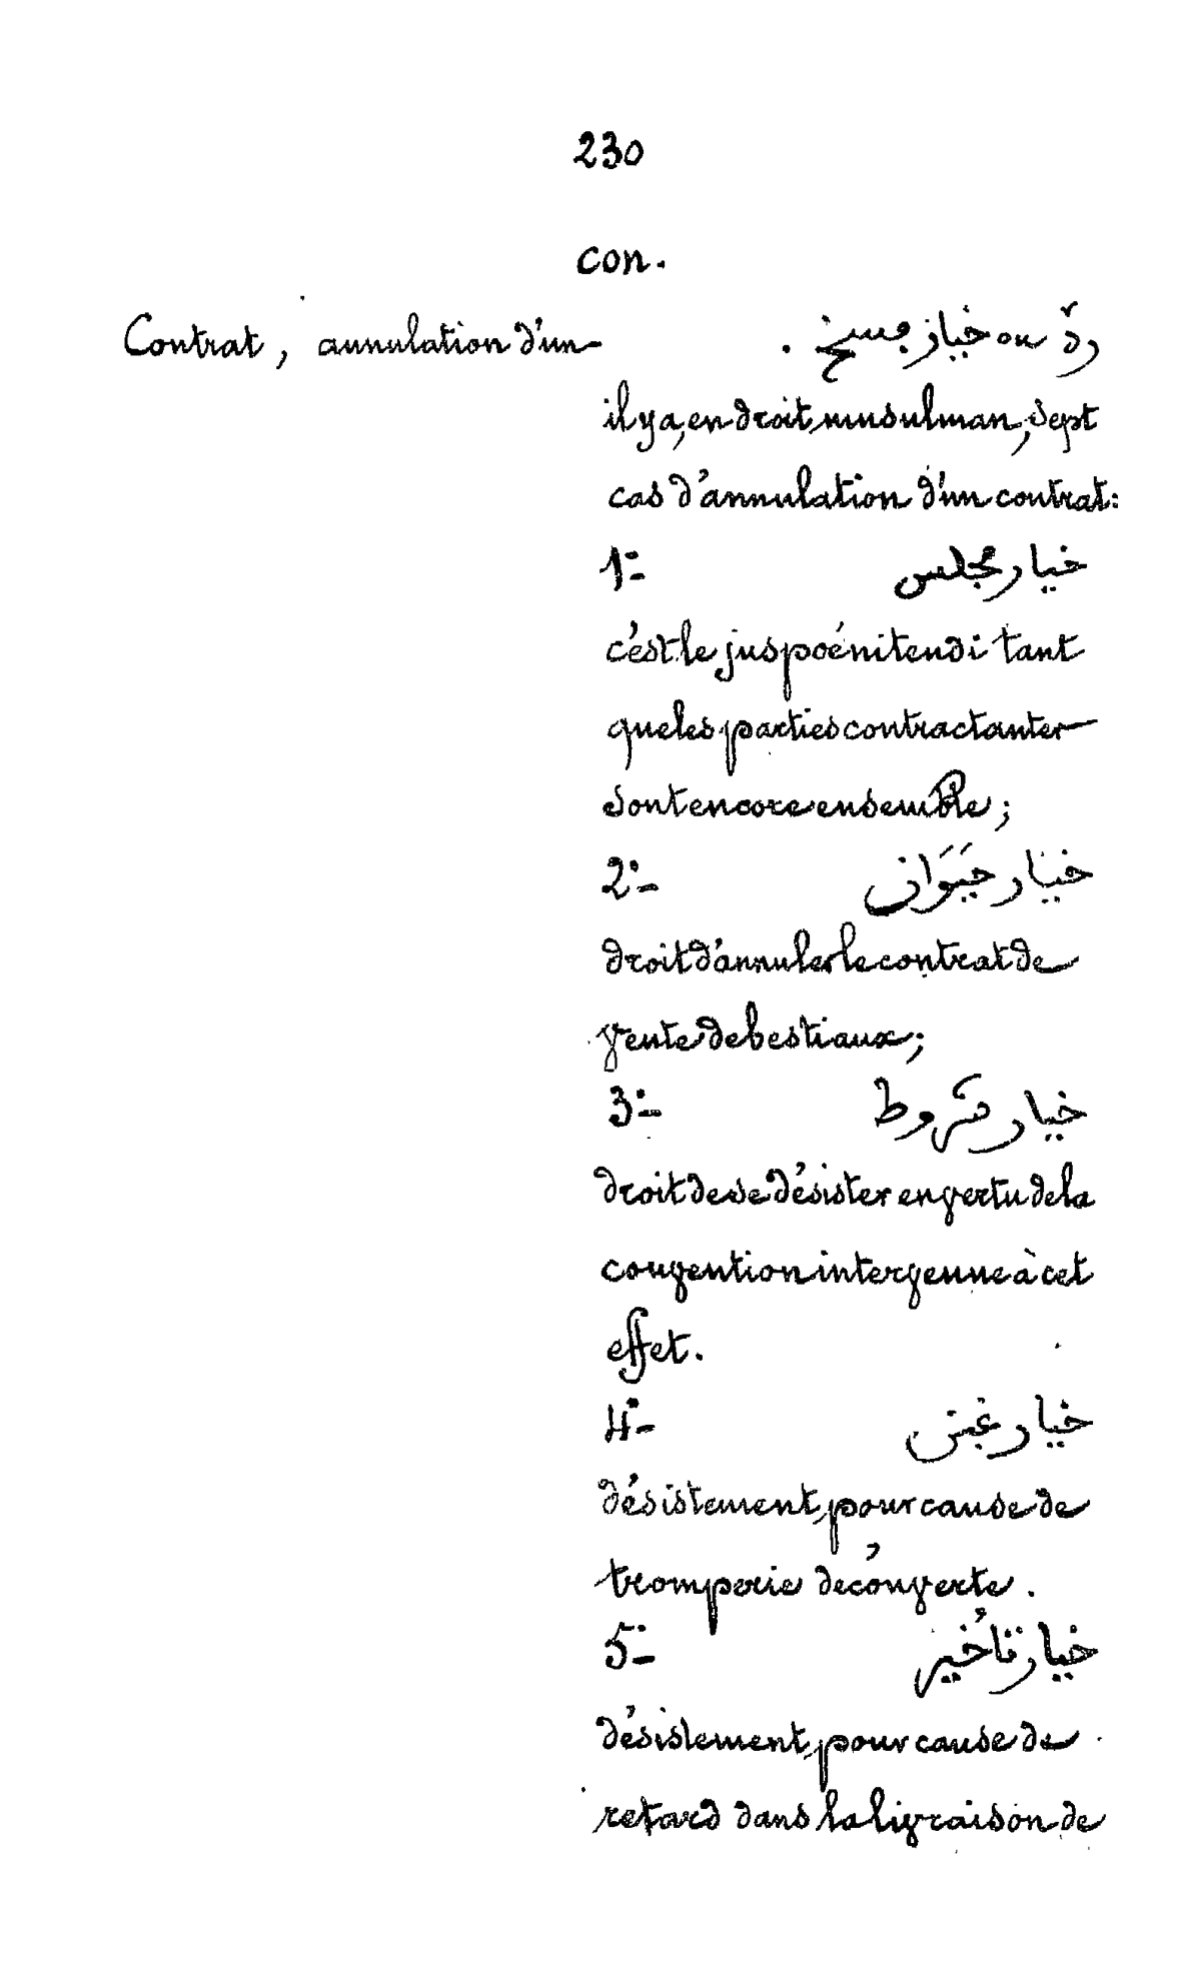 230
con.
Contrat, annulation d'un — ردّ ou خيار فسخ .
il y a, en droit musulman, sept
cas d'annulation d'un contrat:
1:- خيار مجلس
c'est le jus poénitendi tant
que les parties contractantes
sont encore ensemble;
2:- خيار حَيَوَان
droit d'annuler le contrat de
vente de bestiaux;
3:- خيار شروط
droit de se désister en vertu de la
convention intervenue à cet
effet.
4:- خيار غبن
désistement, pour cause de
tromperie découverte.
5:- خيار تأخير
désistement, pour cause de
retard dans la livraison de